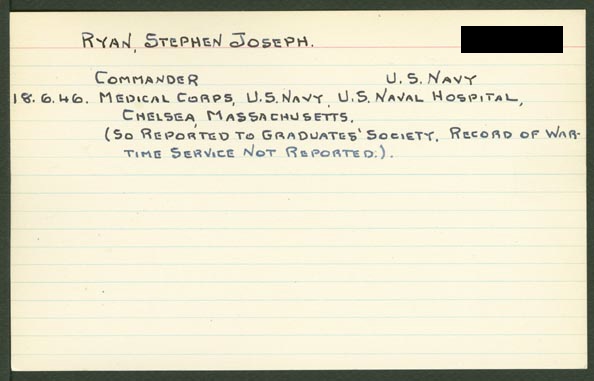 RYAN, STEPHEN JOSEPH.
COMMANDER U.S. NAVY
18.6.46. MEDICAL CORPS, U.S. NAVY, U.S. NAVAL HOSPITAL,
CHELSEA, MASSACHUSETTS.
(SO REPORTED TO GRADUATES' SOCIETY. RECORD OF WAR-
TIME SERVICE NOT REPORTED.).